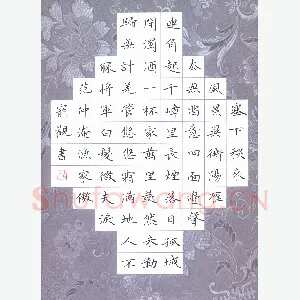 塞下秋来
風景異衡陽雁
去無留意四面邊聲
連角起千嶂里長煙落日孤城
閉濁酒一杯家萬里燕然未勒
歸無計羌管悠悠霜滿地人不
寐將軍白髮征夫淚
范仲淹漁家傲
觀書